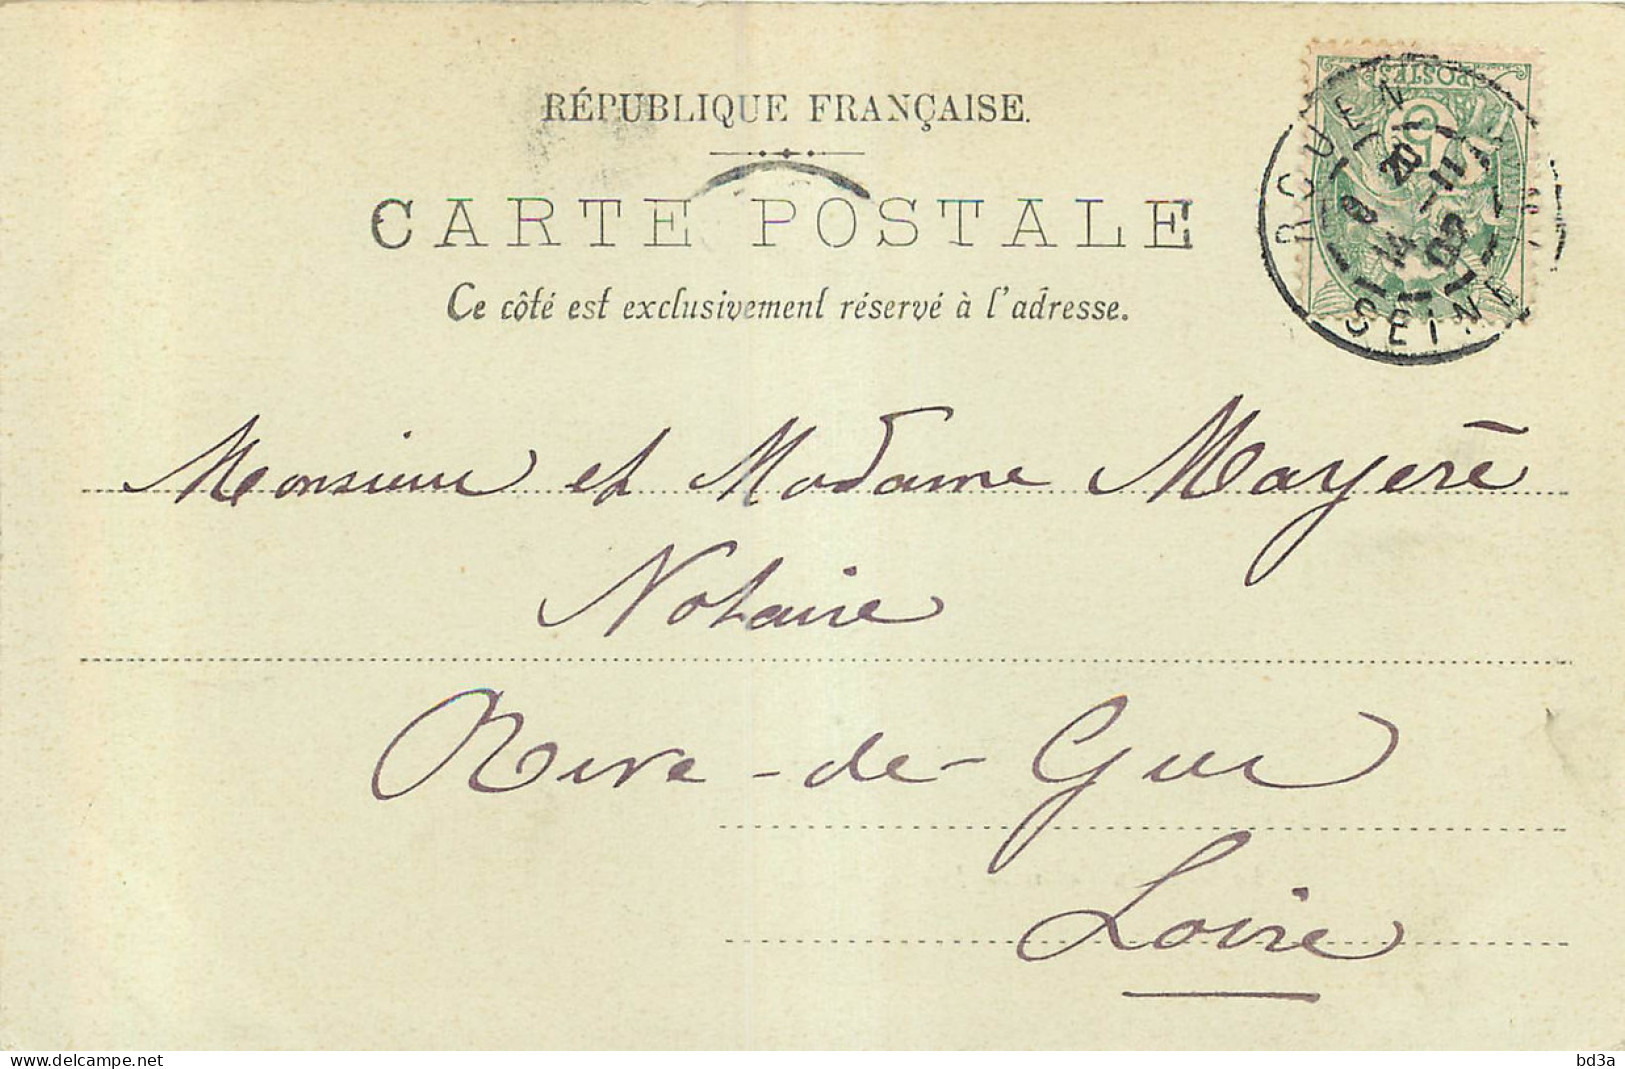 RÉPUBLIQUE FRANÇAISE.
CARTE POSTALE
Ce côté est exclusivement réservé à l'adresse.
POSTES
5
ROUEN
SEINE
Monsieur et Madame Mayère
Notaire
Rive-de-Gier
Loire
www.delcampe.net
bd3a